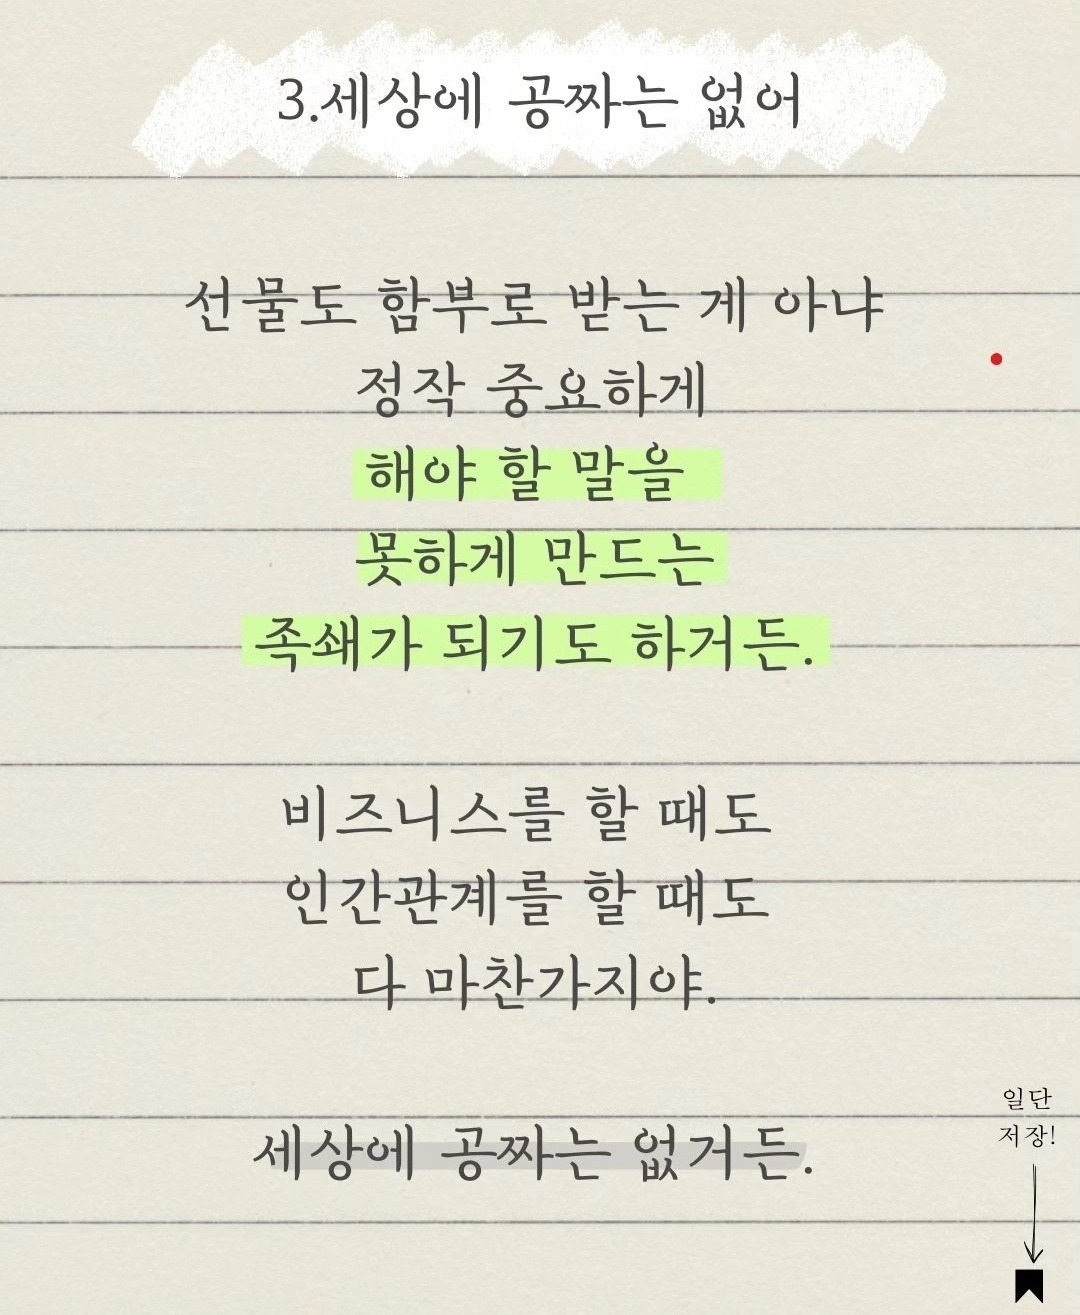 3.세상에 공짜는 없어
선물도 함부로 받는 게 아냐
정작 중요하게
해야 할 말을
못하게 만드는
족쇄가 되기도 하거든.
비즈니스를 할 때도
인간관계를 할 때도
다 마찬가지야.
세상에 공짜는 없거든.
일단
저장!